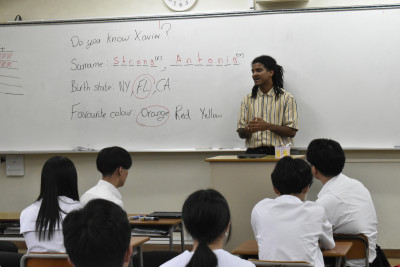 Do you know Xavier?
Surname Strong, Antonio
Birth state: NY, FL, CA
Favourite colour Orange Red Yellow